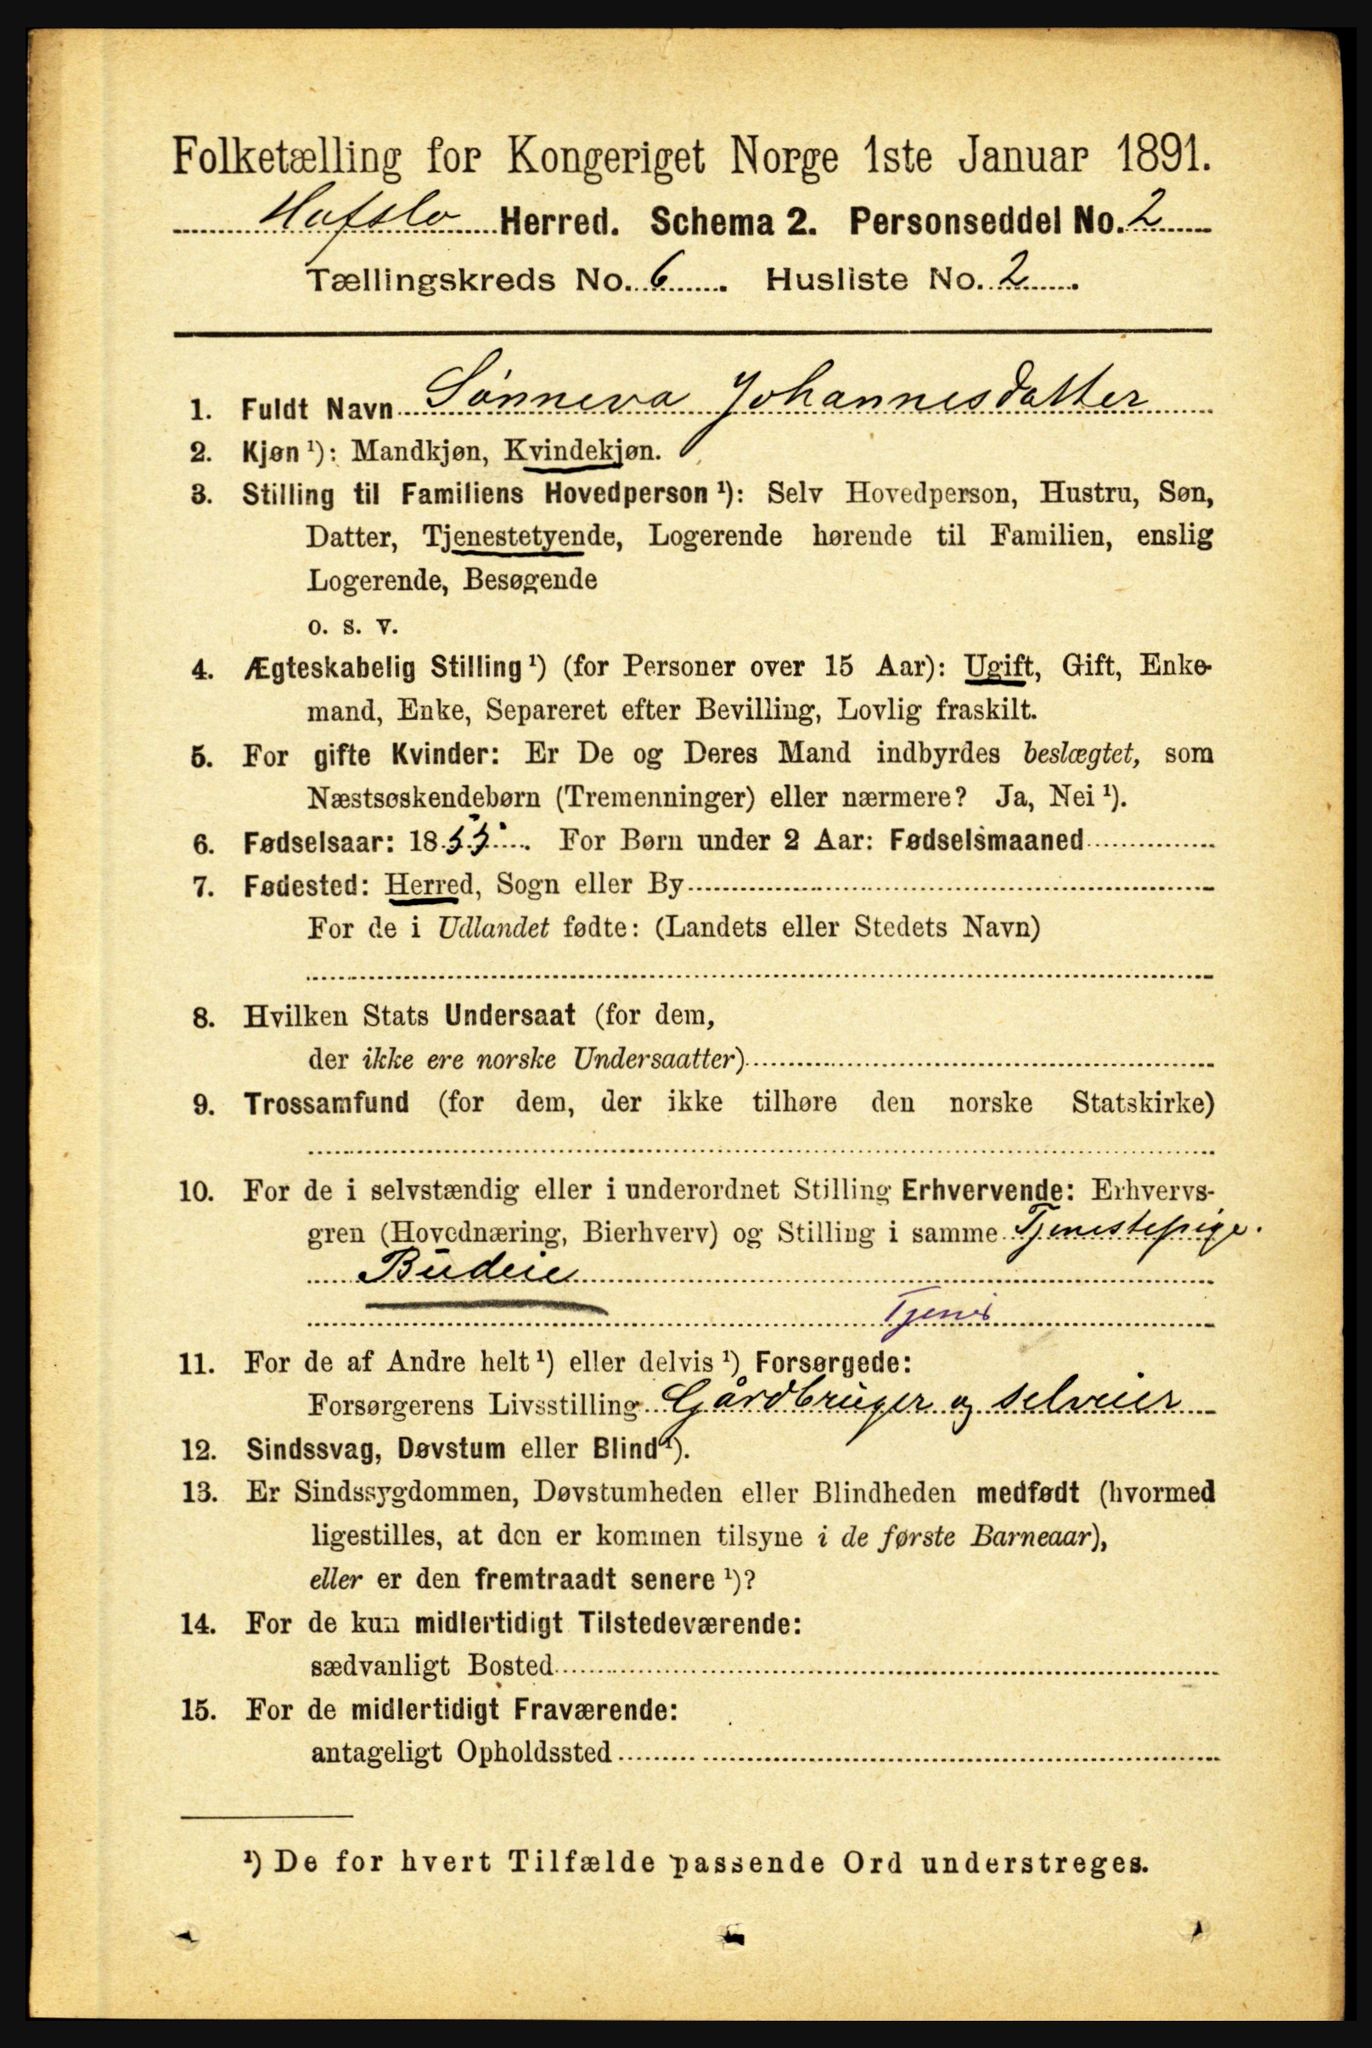 Folketælling for Kongeriget Norge 1ste Januar 1891.
Hafslo Herred. Schema 2. Personseddel No. 2
Tællingskreds No. 6. Husliste No. 2.
1. Fuldt Navn Sønneva Johannesdatter
2. Kjøn ¹): Mandkjøn, Kvindekjøn.
3. Stilling til Familiens Hovedperson ¹): Selv Hovedperson, Hustru, Søn,
Datter, Tjenestetyende, Logerende hørende til Familien, enslig
Logerende, Besøgende
o. s. v.
4. Ægteskabelig Stilling ¹) (for Personer over 15 Aar): Ugift, Gift, Enke-
mand, Enke, Separeret efter Bevilling, Lovlig fraskilt.
5. For gifte Kvinder: Er De og Deres Mand indbyrdes beslægtet, som
Næstsøskendebørn (Tremenninger) eller nærmere? Ja, Nei ¹).
6. Fødselsaar: 1855. For Børn under 2 Aar: Fødselsmaaned
7. Fødested: Herred, Sogn eller By
For de i Udlandet fødte: (Landets eller Stedets Navn)
8. Hvilken Stats Undersaat (for dem,
der ikke ere norske Undersaatter)
9. Trossamfund (for dem, der ikke tilhøre den norske Statskirke)
10. For de i selvstændig eller i underordnet Stilling Erhvervende: Erhvervs-
gren (Hovednæring, Bierhverv) og Stilling i samme Tjenestepige.
Budeie
Tjenis
11. For de af Andre helt ¹) eller delvis ¹) Forsørgede:
Forsørgerens Livsstilling Gårdbruger og selveier
12. Sindssvag, Døvstum eller Blind ¹).
13. Er Sindssygdommen, Døvstumheden eller Blindheden medfødt (hvormed
ligestilles, at den er kommen tilsyne i de første Barneaar),
eller er den fremtraadt senere ¹)?
14. For de kun midlertidigt Tilstedeværende:
sædvanligt Bosted
15. For de midlertidigt Fraværende:
antageligt Opholdssted
¹) De for hvert Tilfælde passende Ord understreges.